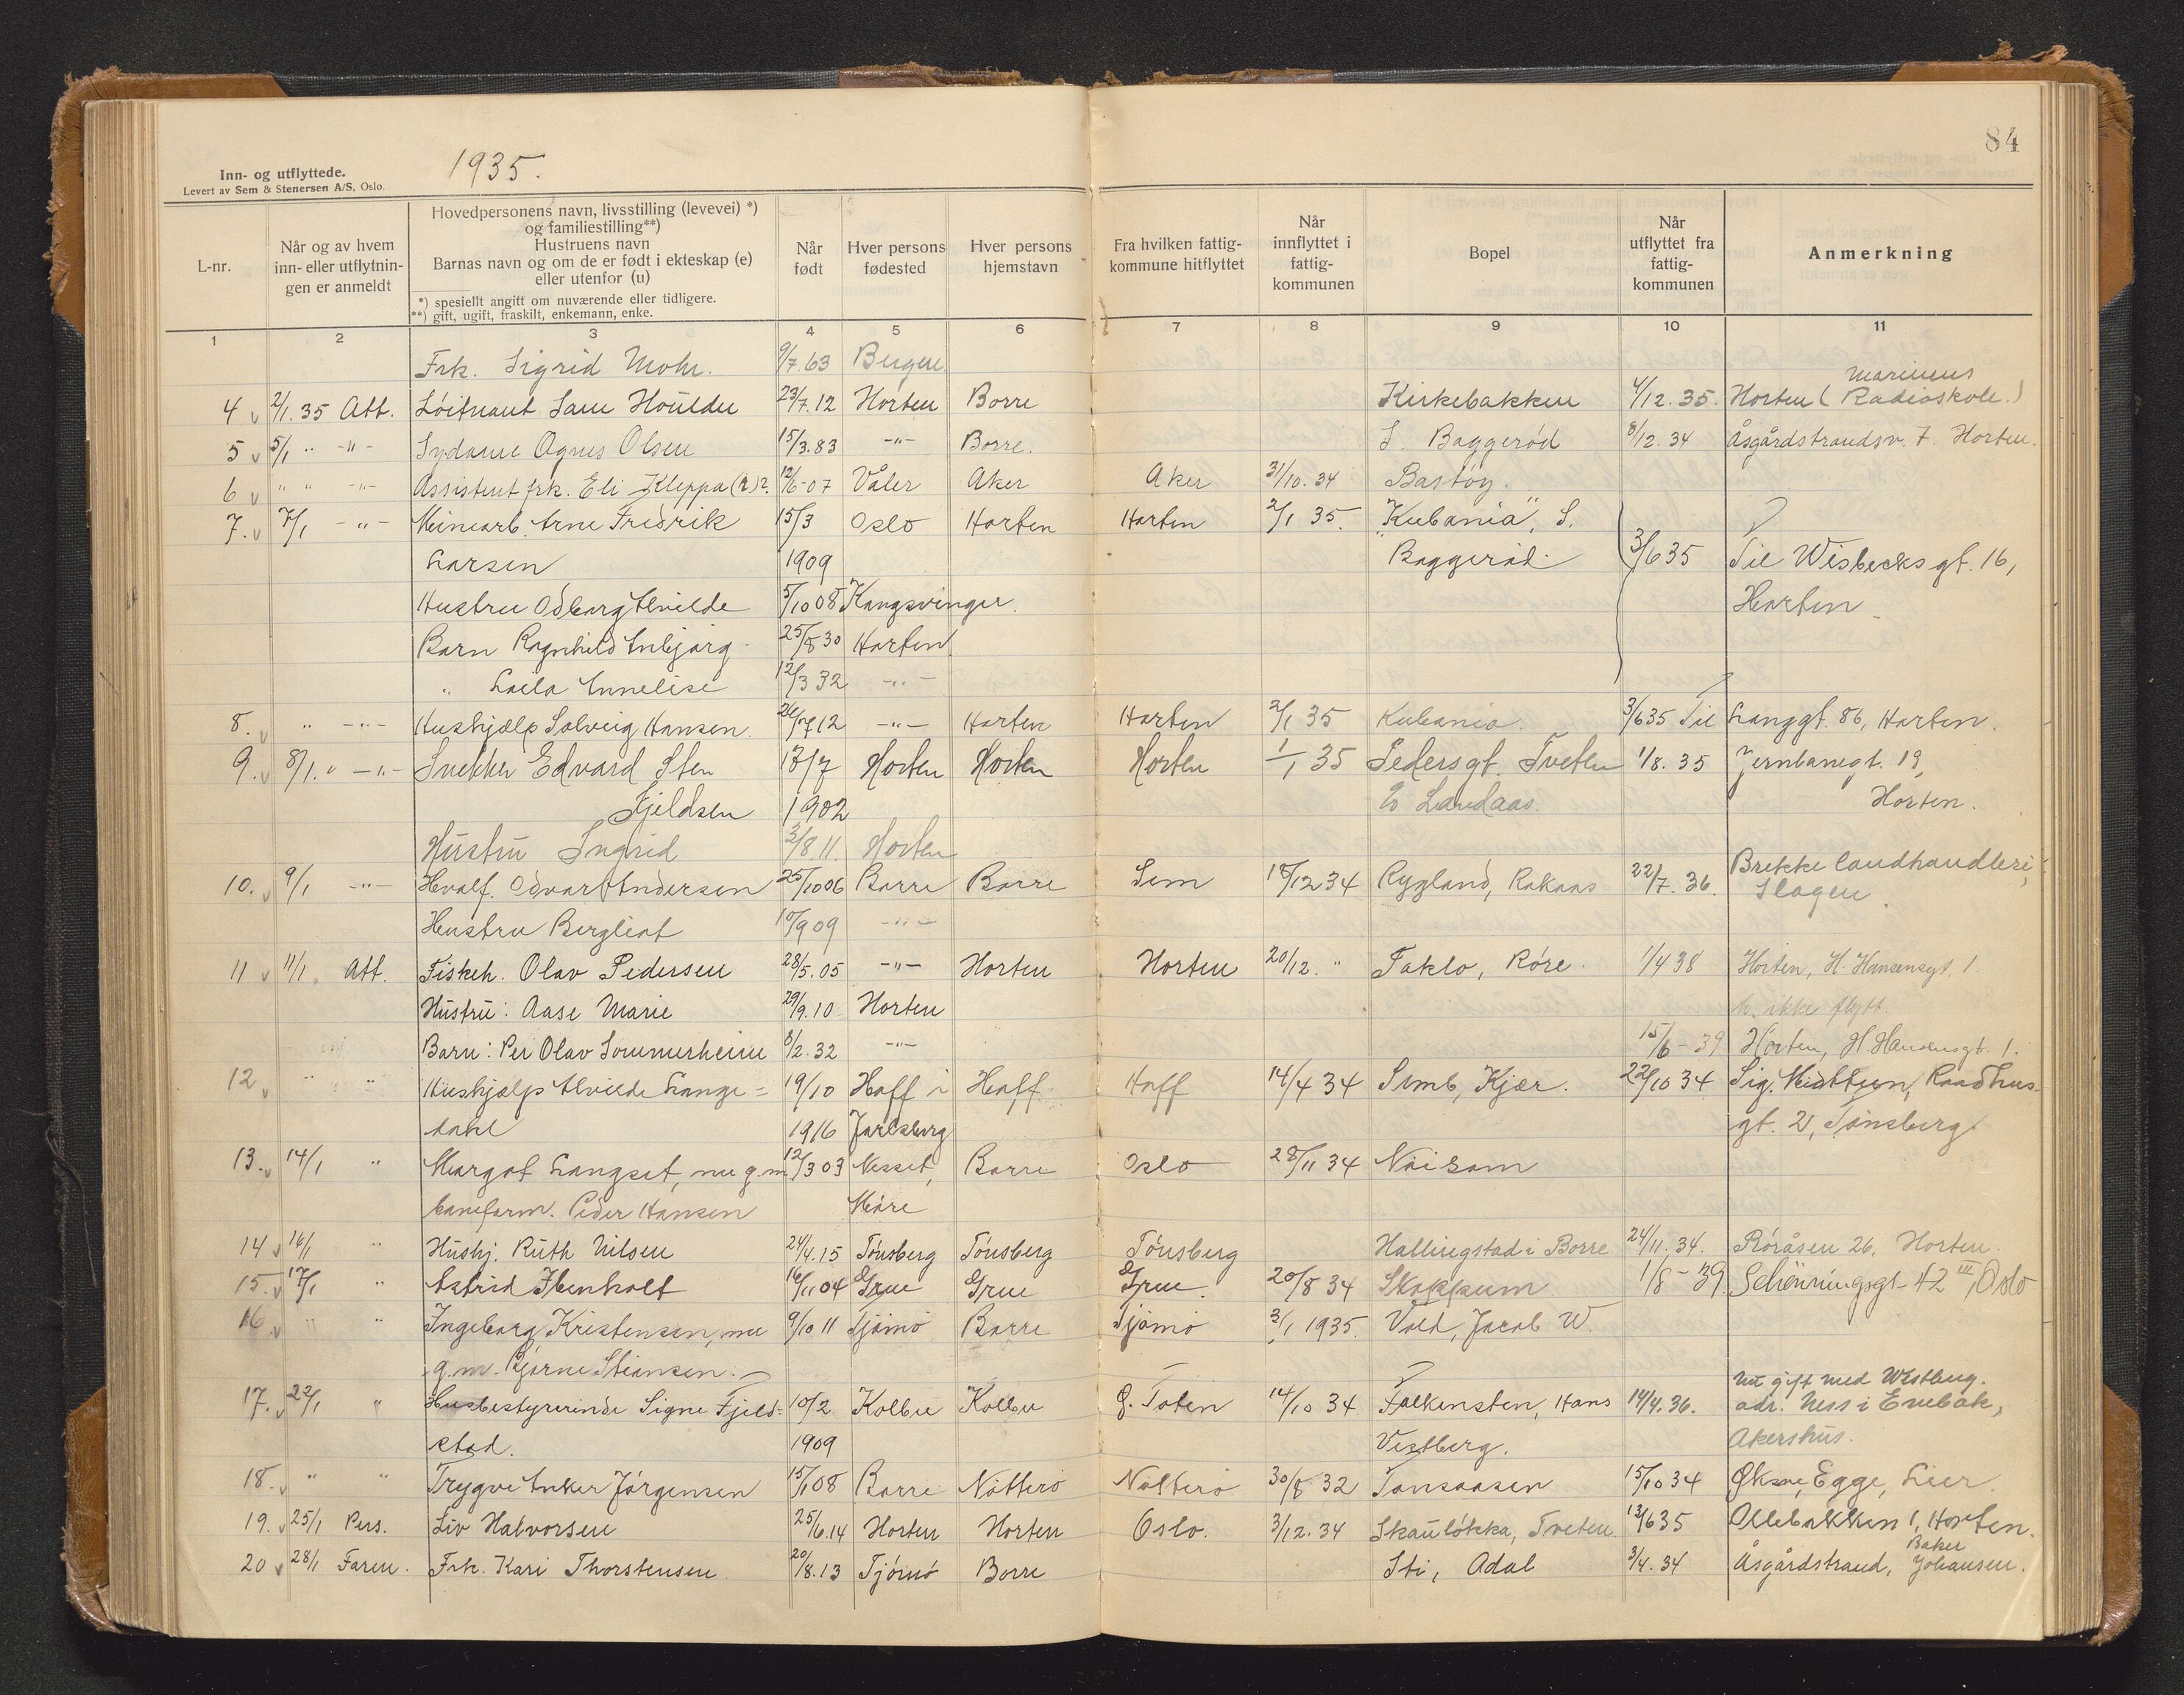 84
Inn- og utflyttede.
Levert av Sem & Stenersen A/S, Oslo.
1935.
L-nr.
Når og av hvem inn- eller utflytnin-gen er anmeldt
Hovedpersonens navn, livsstilling (levevei) *)
og familiestilling**)
Hustruens navn
Barnas navn og om de er født i ekteskap (e)
eller utenfor (u)
*) spesiellt angitt om nuværende eller tidligere.
**) gift, ugift, fraskilt, enkemann, enke.
Når født
Hver persons fødested
Hver persons hjemstavn
Fra hvilken fattig-kommune hitflyttet
Når innflyttet i fattig-kommunen
Bopel
Når utflyttet fra fattig-kommunen
Anmerkning
1 2 3 4 5 6 7 8 9 10 11
Frk. Sigrid Mohr. 9/7.63 Bergen
Marinens
4 v 2/1.35 Att. Løitnant Sam Houlder 23/7.12 Horten Borre Kirkebakken 4/12.35. Horten (Radioskole.)
5 v 5/1 " -"- Sydame Agnes Olsen 15/3.83 -"- Borre. S. Baggerød 8/12.34 Åsgårdstrandsv. 7. Horten.
6 v " " -"- Assistent frk. Eli Kleppa (?)?. 12/6-07 Våler Aker Aker 31/10.34 Bastøy.
7. v 7/1 -"- Minearb. Arne Fredrik 15/3 Oslo Horten Horten 2/1 35. "Kubania", S.
Larsen 1909 Baggerød. 3/6 35 Til Wisbecksgt. 16,
Hustru Odborg Alvilde 5/10 08 Kongsvinger. Horten
Barn Ragnhild Inbjørg 25/8 30 Horten
" Laila Annelise 12/3 32 -"-
8. v " -"- Hushjælp Solveig Hansen. 26/7 12 -"- Horten Horten 2/1 35 Kubania. 3/6 35 Til Langgt. 86, Horten.
9. v 8/1. " -"- Snekker Edvard Sten 13/7 Horten Horten Horten 1/1 35 Pedersgt. Tveten 1/8. 35 Jernbanegt. 19,
Kjeldsen 1902 Eo Landaas. Horten.
Hustru Ingrid 3/8.11. Horten
10. v 9/1 -"- Hvalf. Odvar Andersen 25/10 06 Borre Borre Sem 18/12 34 Rygland, Rakaas 22/7. 36. Brekke landhandleri,
Slagen.
Hustru Bergliot 10/9 09 -"-
11 v 11/1. Att. Fiskeh. Olav Pedersen 28/5.05 -"- Horten Horten 20/12. " Taklo, Røre. 1/4 38 Horten, H. Hansensgt. 1.
Hustru: Aase Marie 29/9.10 Horten ikke flytt
Barn: Per Olav Sommerheim 8/2.32 -"- 15/6-39 Horten, H. Hansensgt. 1.
12 v " " Hushjælp Alvilde Lange= 19/10 Hoff i Hoff Hoff 14/4 34 Semb, Kjær. 22/10 34 Sig. Midttun, Raadhus-
dahl 1916 Jarlsberg gt. 2, Tønsberg
13. v 14/1 " Margot Langset, nu g.m. 12/3 03 Nesset, Borre Oslo 28/11 34 Noisom
baneform. Peder Hansen Møre
14 v 16/1 " Hushj. Ruth Nilsen 24/4.15 Tønsberg Tønsberg Tønsberg Hallingstad i Borre 24/11.34. Røråsen 26. Horten.
15. v 17/1 " Astrid Ibenholt 16/11 04 Grue Grue Grue. 20/8 34 Skoppum 1/8-39. Schønningsgt 42 III, Oslo
16. v " " Ingeborg Kristensen, nu 9/10 11 Tjømø Borre Tjømø 3/1 1935. Vold, Jacob W.
g.m. Bjarne Stiansen.
17. v 22/1 " Husbestyrerinde Signe Fjeld= 10/2 Kolbu Kolbu Ø. Toten 14/10 34 Falkensten, Hans 14/4.36. nu gift med Westberg.
adr. Ness i Enebak,
stad. 1909 Vestberg. Akershus.
18. v " " Trygve Anker Jørgensen 15/1 08 Borre Nøtterø Nøtterø 30/8 32 Tonsaasen 15/10 34 Øksne, Egge, Lier.
19. v 25/1 Pers. Liv Halvorsen 25/6.14 Horten Horten Oslo. 3/12.34 Skauløkka, Tveten 13/6 35 Ollebakken 1, Horten.
Baker
20 v 28/1 Faren. Frk. Kari Thorstensen 20/8.13 Tjømø Borre Sti, Adal 3/4.34 Åsgårdstrand, Johansen.